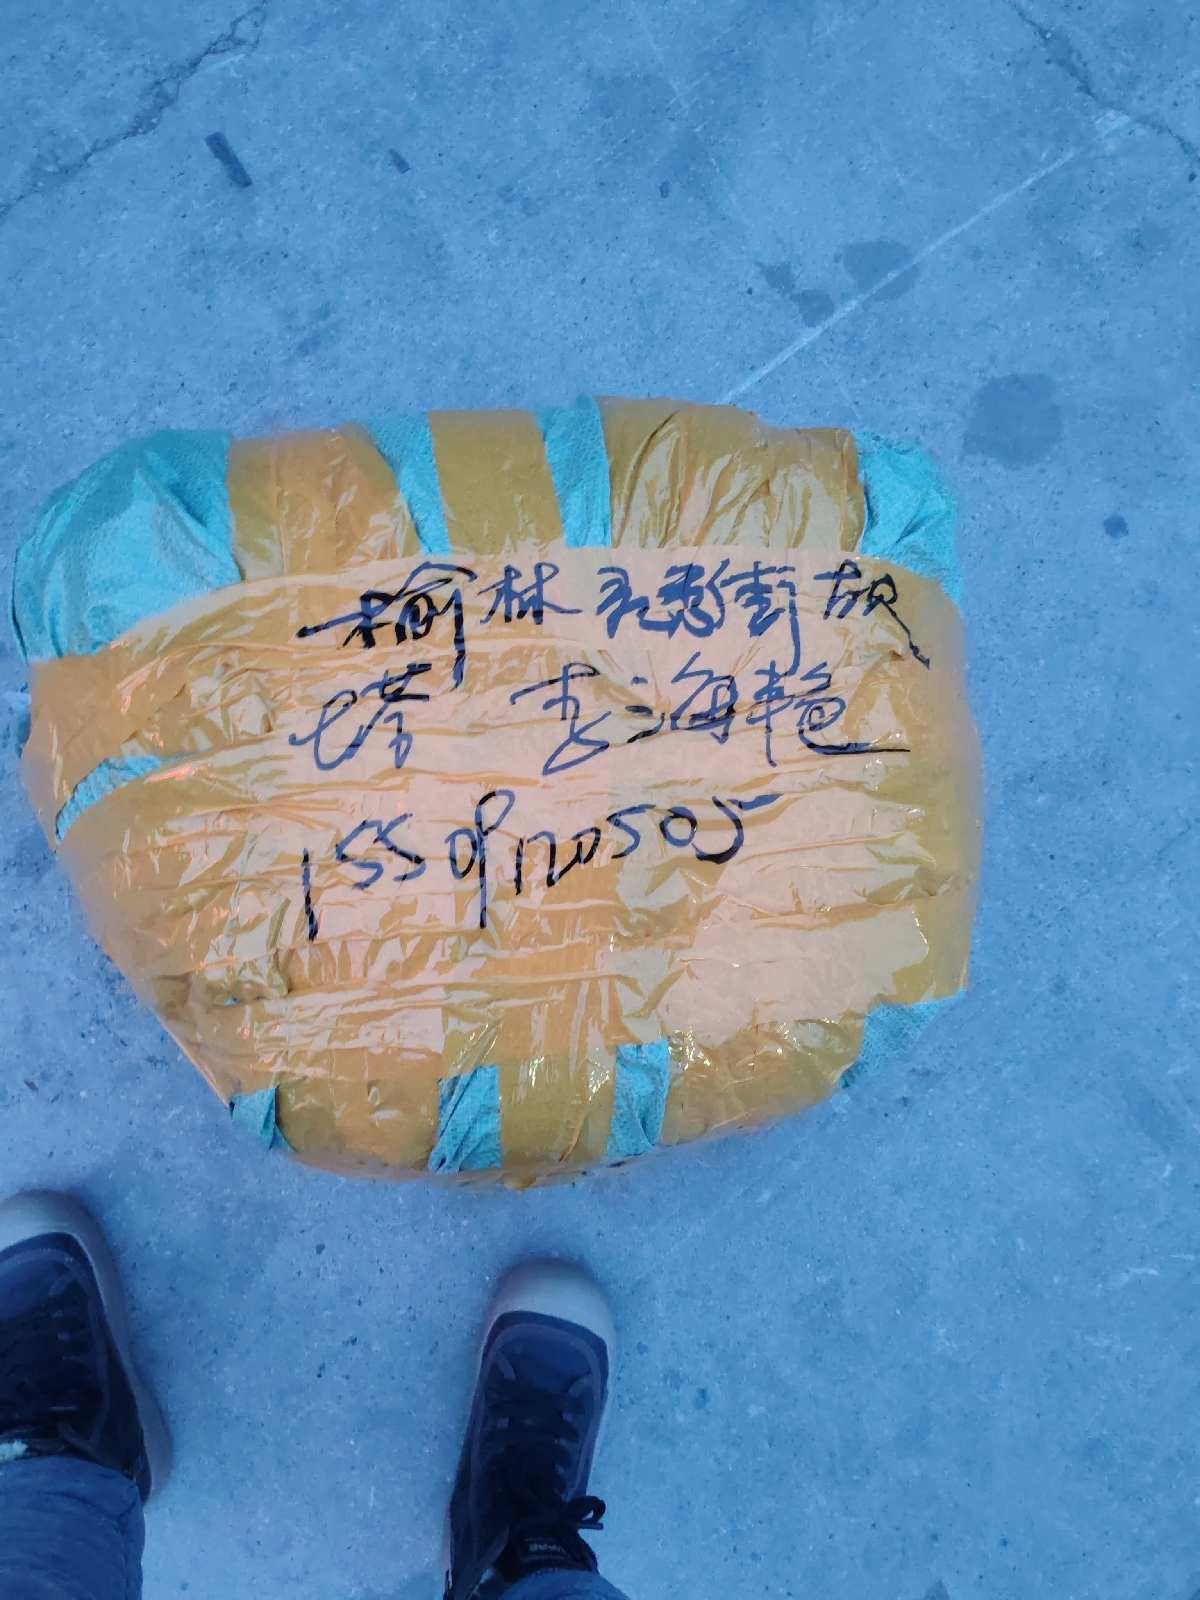 榆林 街胡
塔 李海艳
15509120505